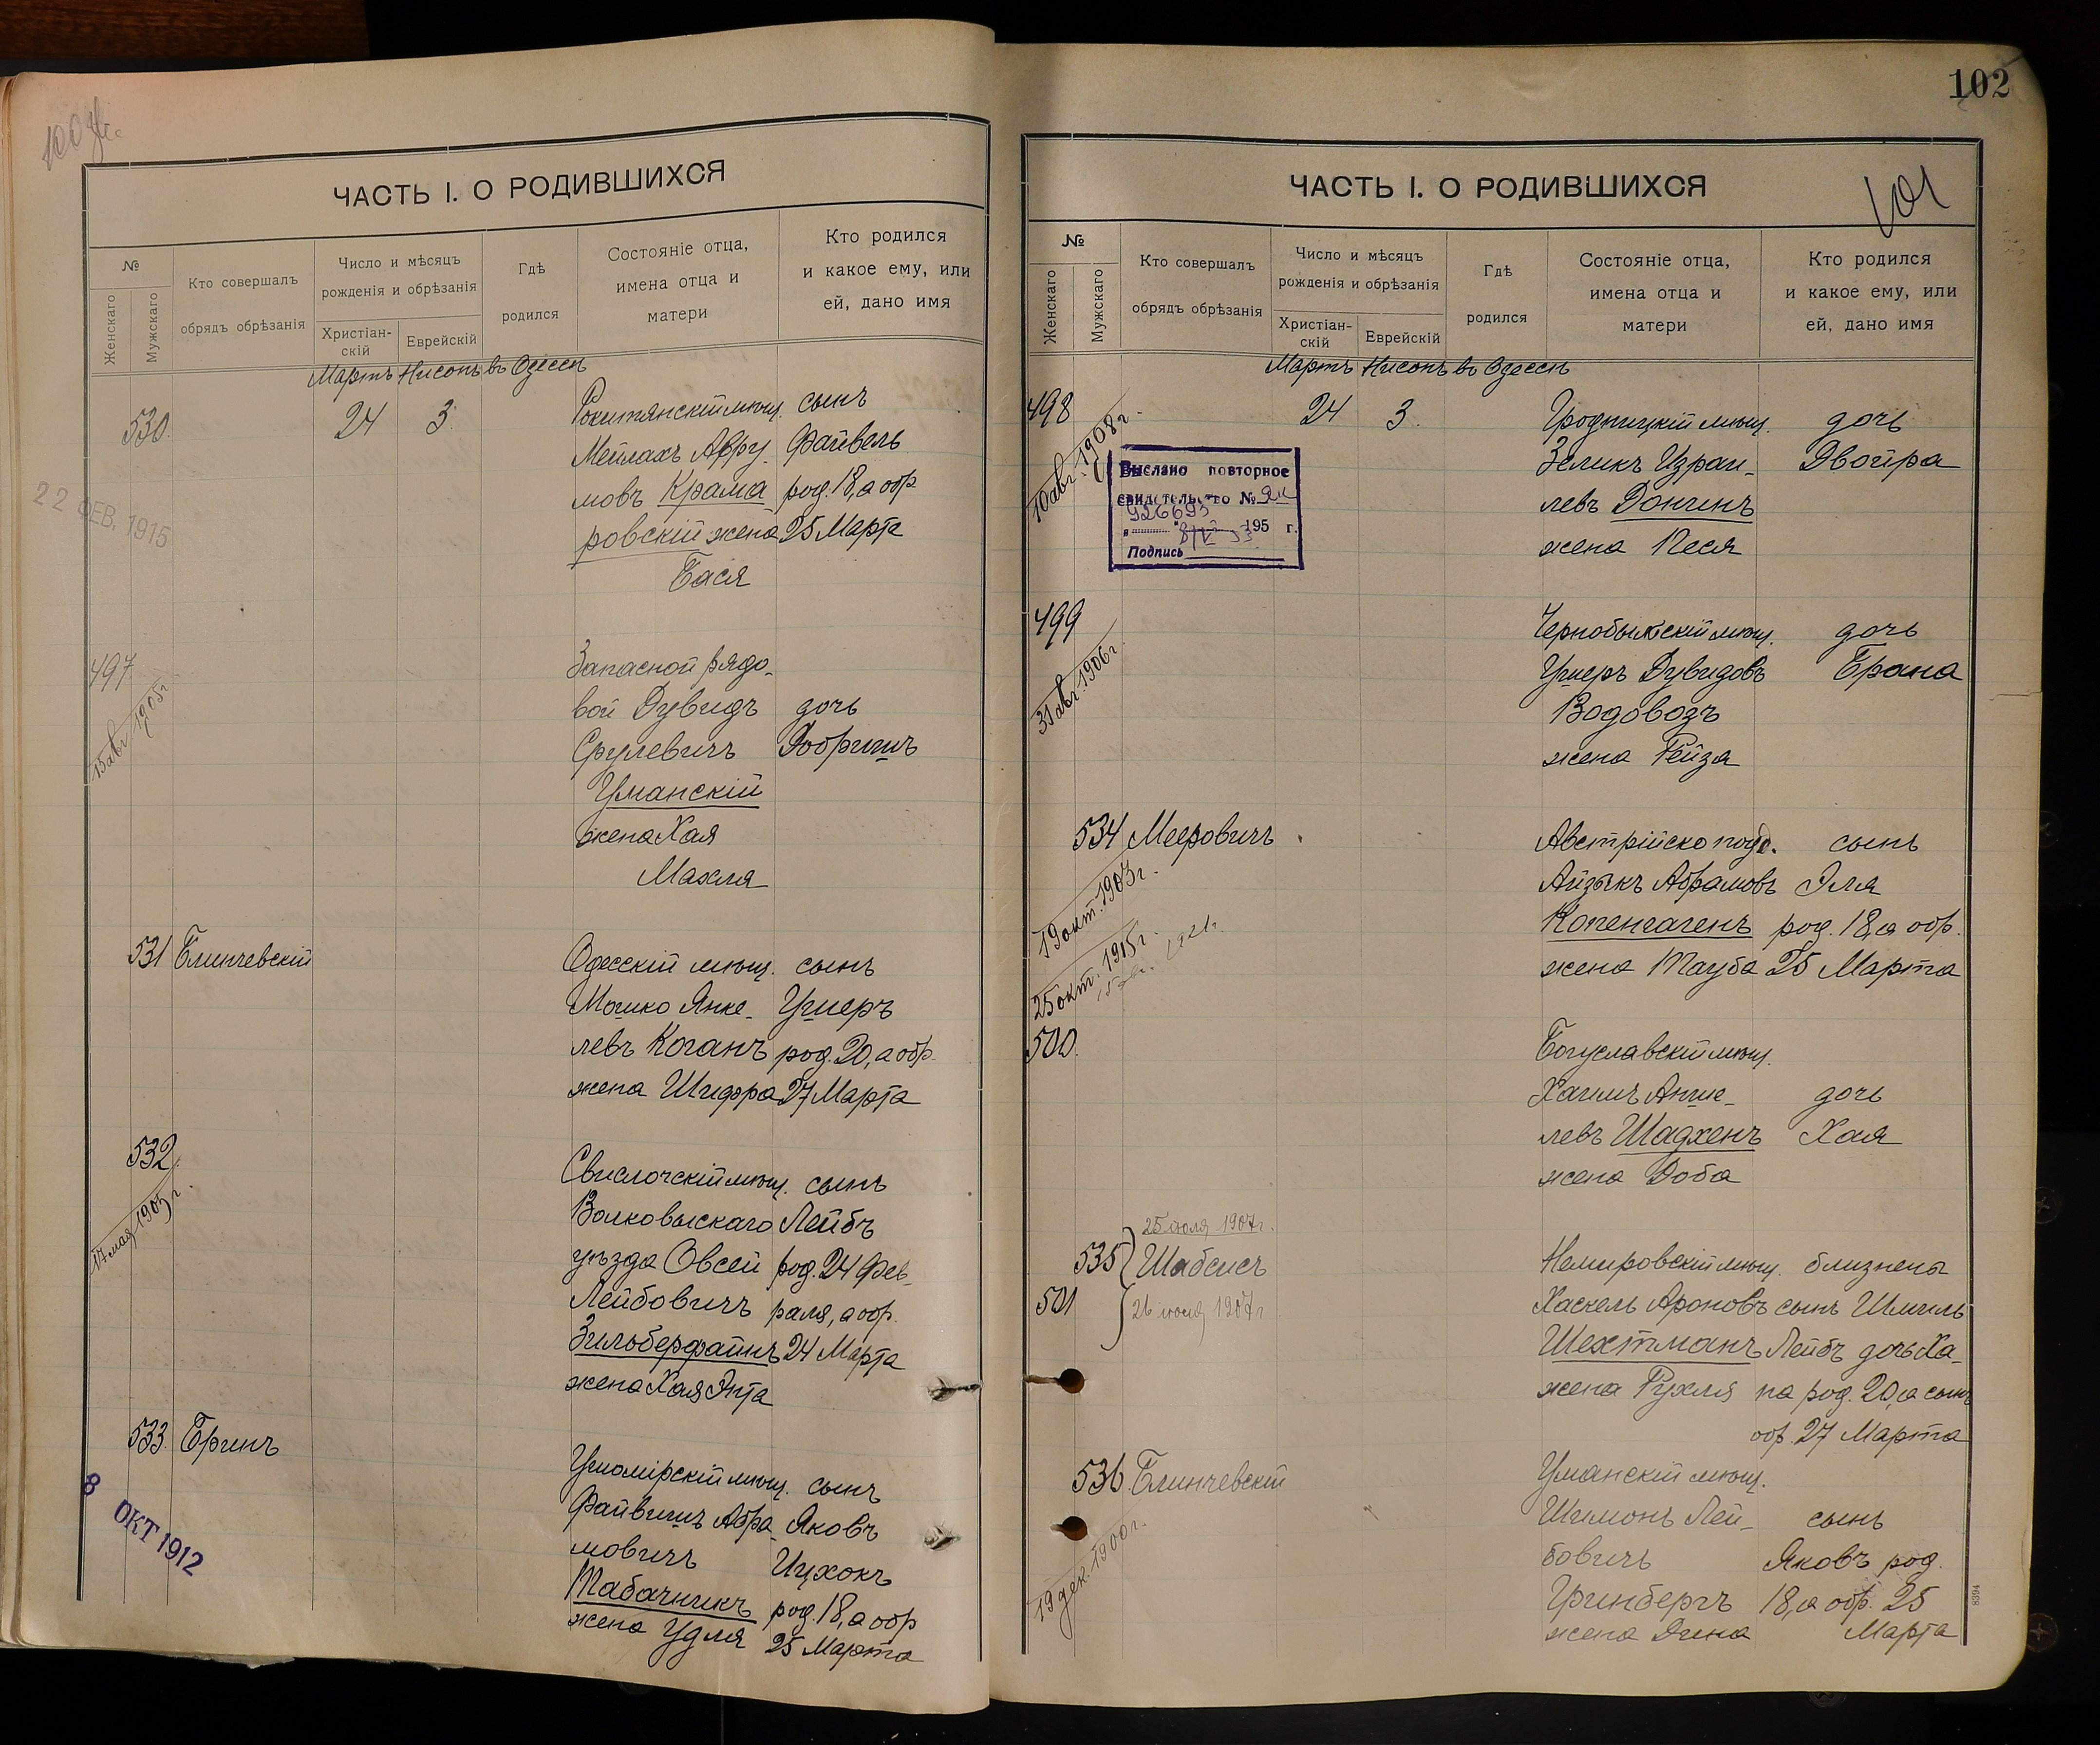 ЧАСТЬ I. О РОДИВШИХСЯ
№
Женскаго
Мужскаго
Кто совершалъ
обрядъ обрѣзанія
Число и мѣсяцъ
рожденія и обрѣзанія
Христіан-
скій
Еврейскій
Гдѣ
родился
Состояніе отца,
имена отца и
матери
Кто родился
и какое ему, или
ей, дано имя
Мартъ Нисонъ въ Одессѣ
530. 24 3. Рокитянскій мѣщ. сынъ
Мейлахъ Авру- Файвель
мовъ Крама- род. 18, а обр.
ровскій жена 25 Марта
Бася
22 ФЕВ. 1915
497 Запасной рядо-
вой Дувидъ дочь
Срулевичъ Добришъ
Уманскій
жена Хая
Махля
15 авг. 1905 г.
531 Блинчевскій Одесскій мѣщ. сынъ
Мошко Янке- Ушеръ
левъ Коганъ род. 20, а обр.
жена Шифра 27 Марта
532 Свислочскій мѣщ. сынъ
Волковыскаго Лейбъ
уѣзда Овсей род. 24 Фев-
Лейбовичъ раля, а обр.
Зильберфайнъ 24 Марта
жена Хая Энта
17 мая 1903 г.
533. Бринъ Ушомірскій мѣщ. сынъ
Файвишъ Абра- Яковъ
мовичъ Ицхокъ
Табачникъ род. 18, а обр.
жена Удля 25 Марта
8 ОКТ 1912
102
101
ЧАСТЬ I. О РОДИВШИХСЯ
№
Женскаго
Мужскаго
Кто совершалъ
обрядъ обрѣзанія
Число и мѣсяцъ
рожденія и обрѣзанія
Христіан-
скій
Еврейскій
Гдѣ
родился
Состояніе отца,
имена отца и
матери
Кто родился
и какое ему, или
ей, дано имя
Мартъ Нисонъ въ Одессѣ
498 24 3. дочь
Зеликъ Израи- Двойра
левъ Дончинъ
жена Песя
10 авг. 1908 г.
Выслано повторное
свидетельство №
926693
195 г.
Подпись
499 Чернобыльскій мѣщ. дочь
Ушеръ Дувидовъ Брана
Водовозъ
жена Рейза
31 авг. 1906 г.
534 Мееровичъ Австрійско под. сынъ
Айзыкъ Абрамовъ Эля
Копенгагенъ род. 18, а обр.
жена Тауба 25 Марта
19 окт. 1903 г.
25 окт. 1915 г.
500. Богуславскій мѣщ.
Хаимъ Анше- дочь
левъ Шадхенъ Хая
жена Доба
25 іюля 1907 г.
535 Шабсисъ Немировскій мѣщ. близнецы
501 26 іюля 1907 г. Хаскель Ароновъ сынъ Шмиль
Шехтманъ Лейбъ дочь Ха-
жена Рухля на род. 20, а сынъ
обр. 27 Марта
536. Блинчевскій Уманскій мѣщ.
Шимонъ Лей- сынъ
бовичъ Яковъ род.
Гринбергъ 18, а обр. 25
жена Дина Марта
19 дек. 1900 г.
8394